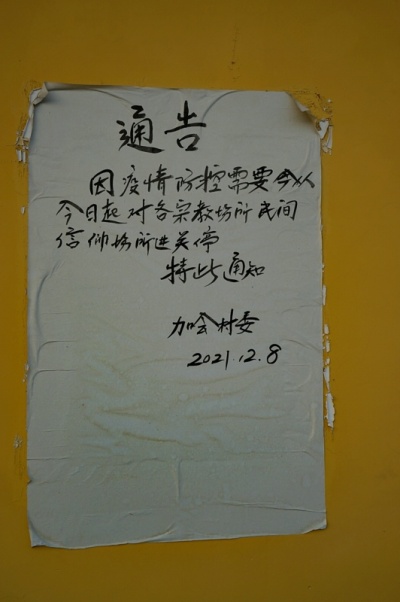 通告
因疫情防控需要从
今日起对各宗教场所民间
信仰场所进关停
特此通知
加会村委
2021.12.8